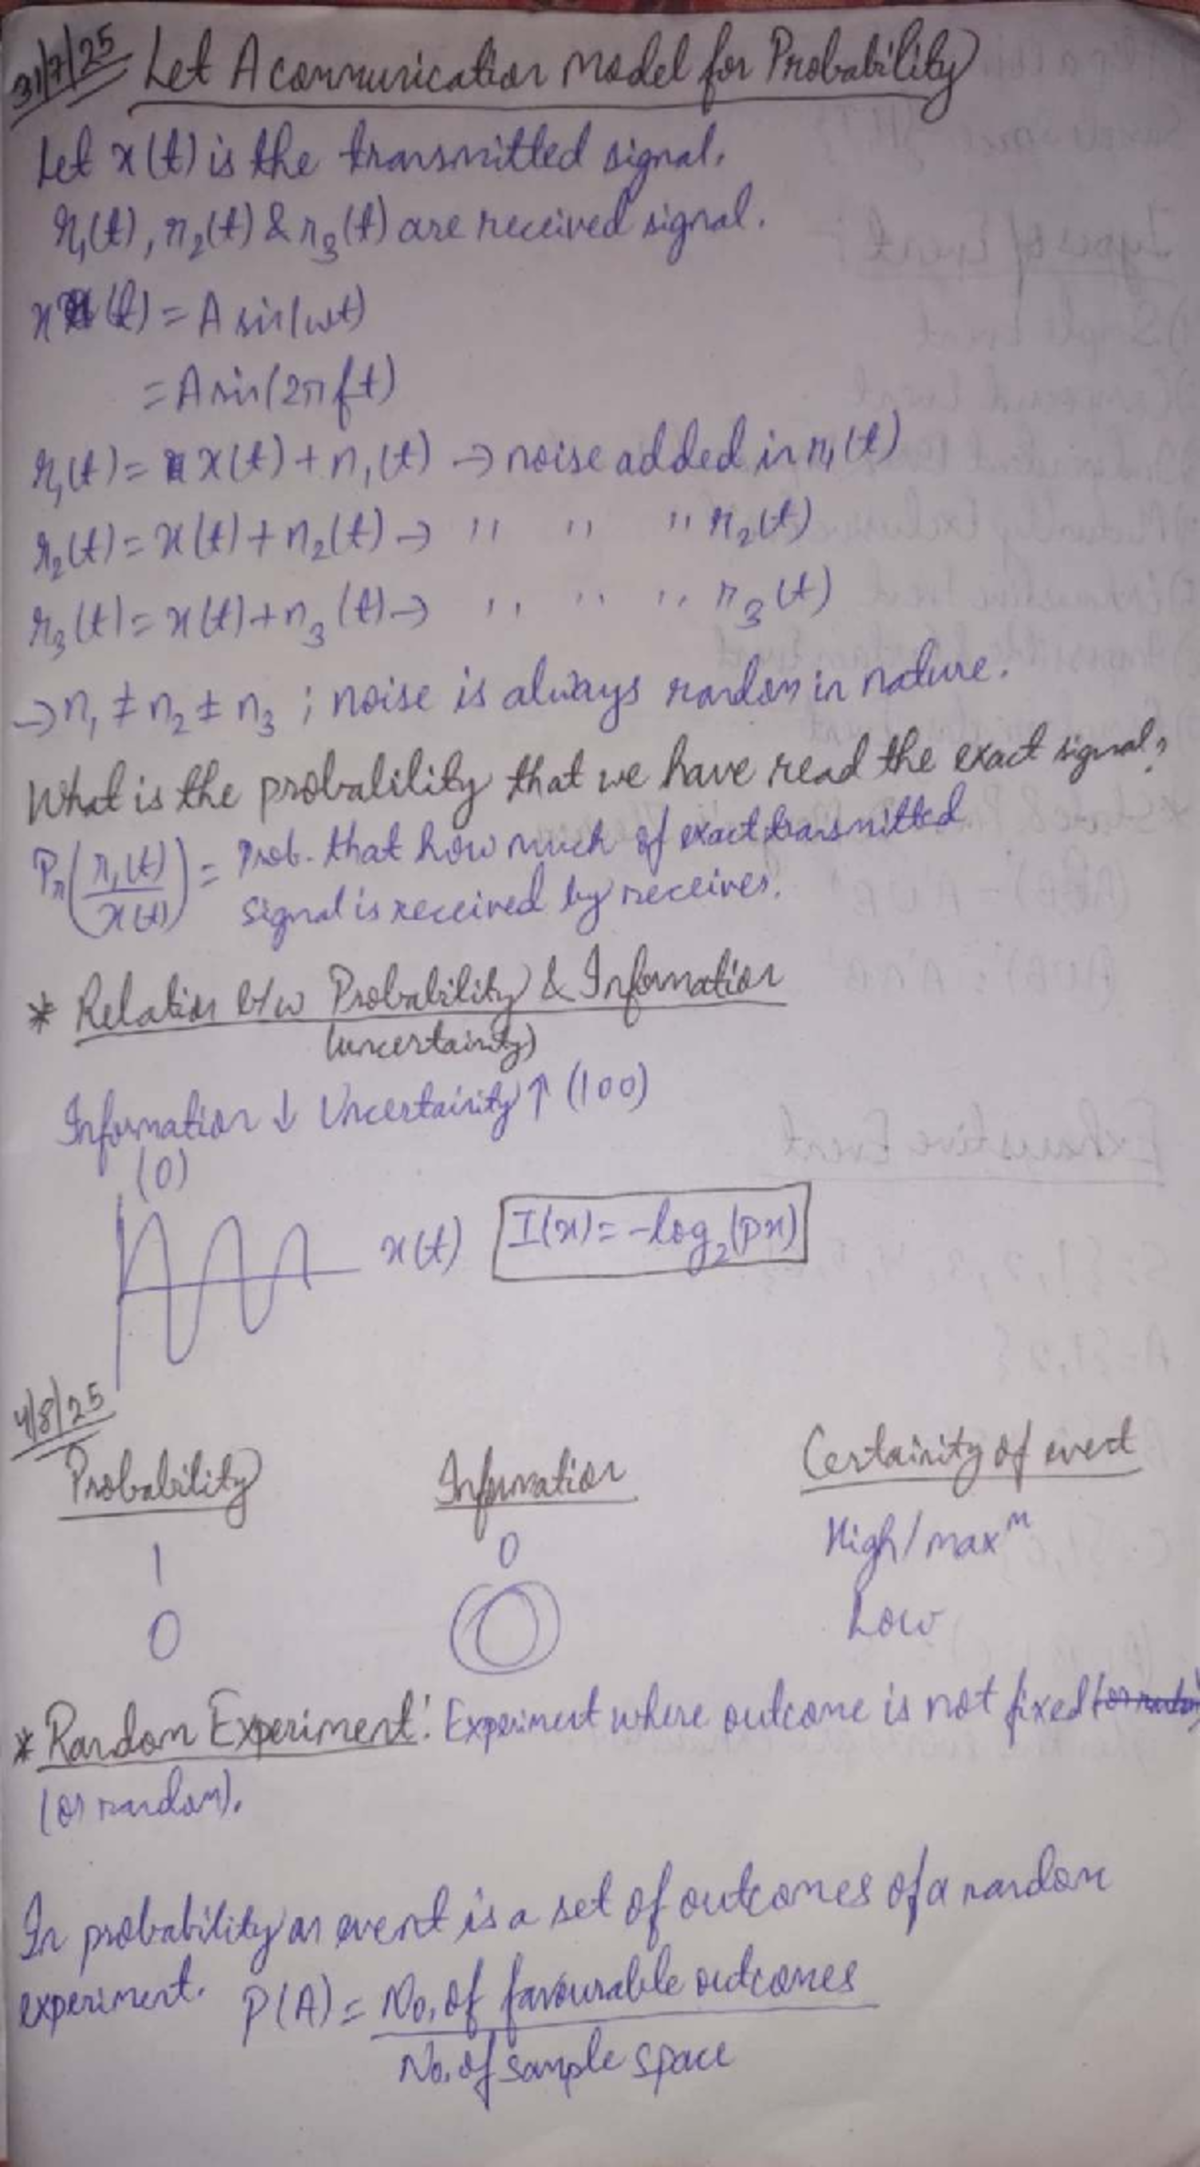 31/7/25 Let A communication model for Probability
Let x(t) is the transmitted signal.
r₁(t), r₂(t) & r₃(t) are received signal.
x(t) = A sin(ωt)
= A sin(2πft)
r₁(t) = x(t) + n₁(t) → noise added in r₁(t)
r₂(t) = x(t) + n₂(t) → " " " r₂(t)
r₃(t) = x(t) + n₃(t) → " " " r₃(t)
→ n₁ ≠ n₂ ≠ n₃ ; noise is always random in nature.
What is the probability that we have read the exact signal?
Pr(r₁(t)/x(t)) = Prob. that how much of exact transmitted
signal is received by receiver.
* Relation b/w Probability & Information
(uncertainity)
Information ↓ Uncertainity ↑ (100)
(0)
x(t) I(x) = -log₂(px)
4/8/25
Probability Information Certainity of event
1 0 High/maxᵐ
0 Low
* Random Experiment: Experiment where outcome is not fixed
(or random).
In probability an event is a set of outcomes of a random
experiment. P(A) = No. of favourable outcomes
No. of sample space